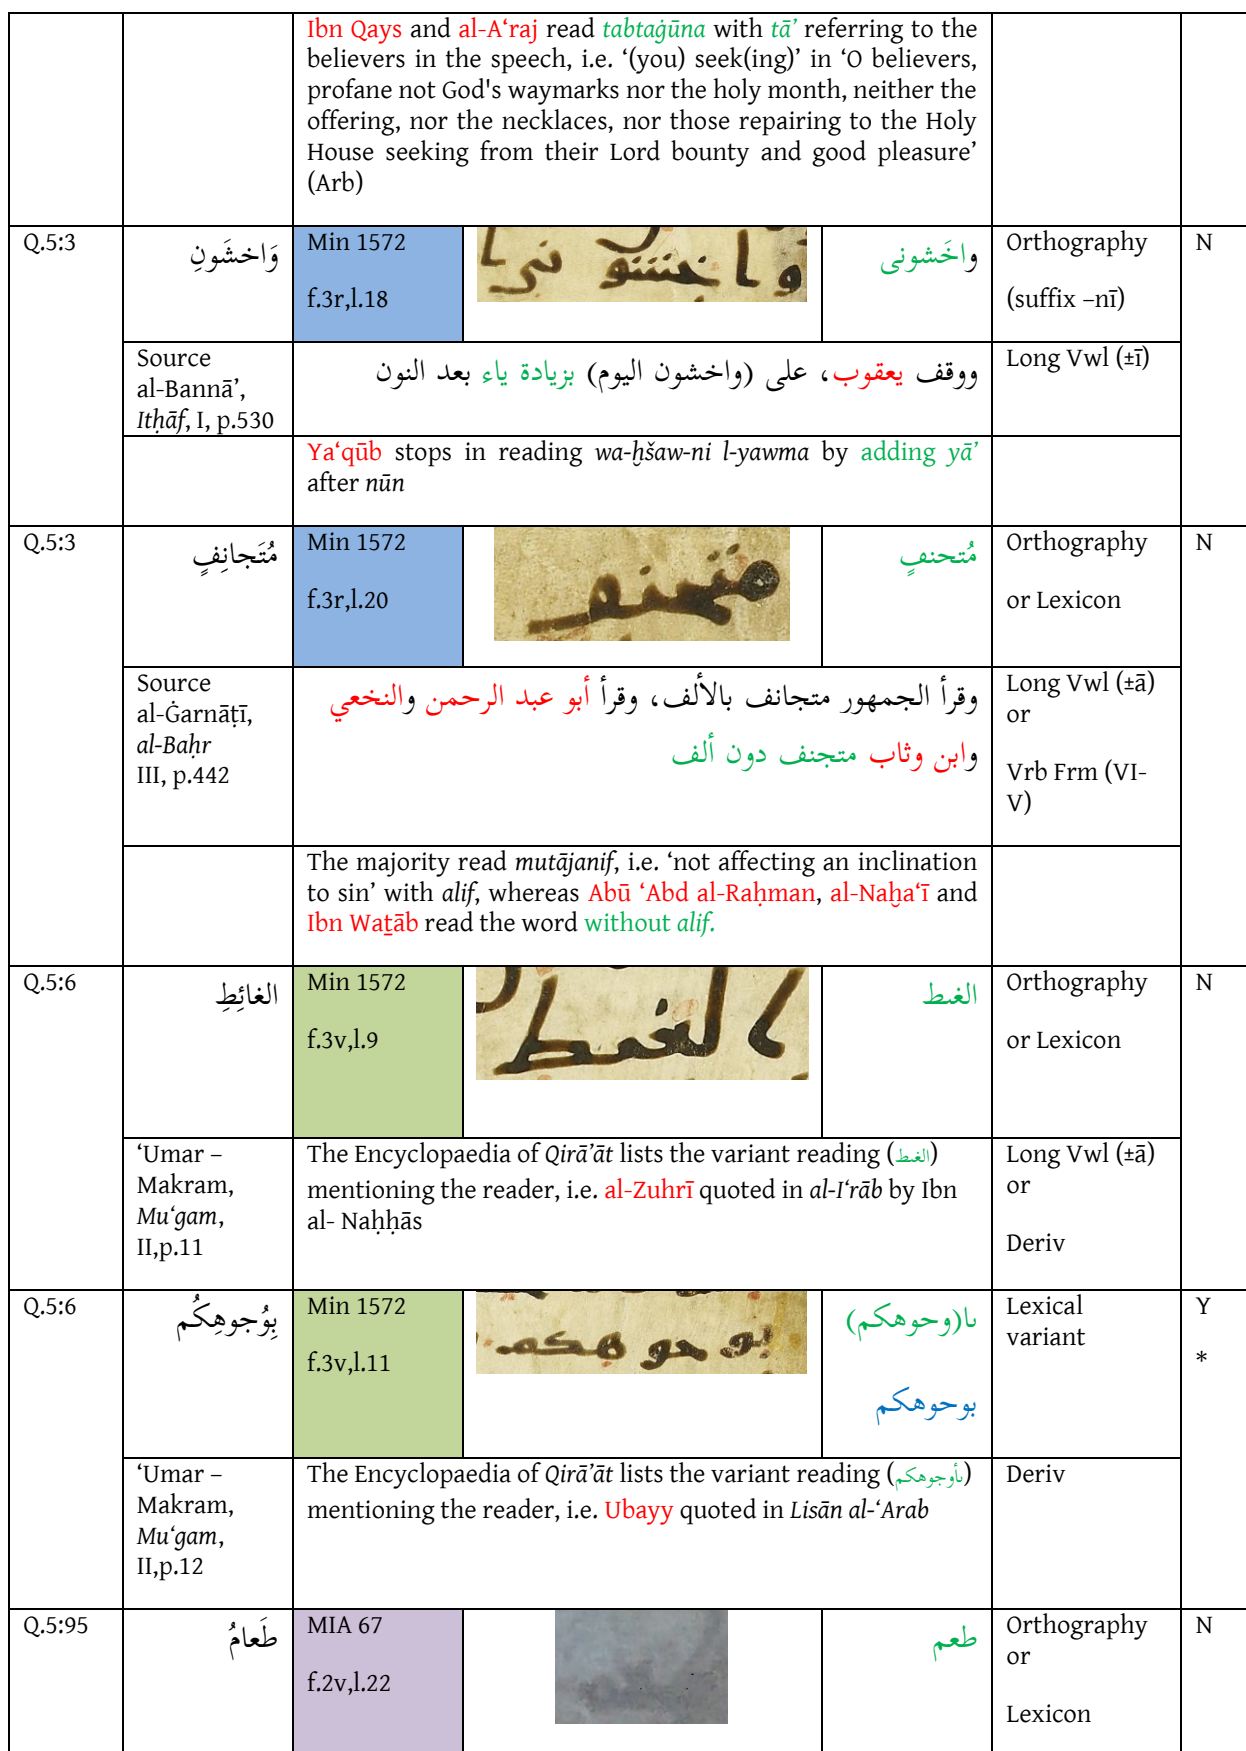 Ibn Qays and al-A‘raj read tabtaġūna with tā’ referring to the
believers in the speech, i.e. ‘(you) seek(ing)’ in ‘O believers,
profane not God's waymarks nor the holy month, neither the
offering, nor the necklaces, nor those repairing to the Holy
House seeking from their Lord bounty and good pleasure’
(Arb)
Q.5:3
وَاخشَونِ
Min 1572
f.3r,l.18
واخَشونى
Orthography
(suffix –nī)
N
Source
al-Bannā’,
Itḥāf, I, p.530
ووقف يعقوب، على (واخشون اليوم) بزيادة ياء بعد النون
Long Vwl (±ī)
Ya‘qūb stops in reading wa-ḫšaw-ni l-yawma by adding yā’
after nūn
Q.5:3
مُتَجانِفٍ
Min 1572
f.3r,l.20
مُتحنفٍ
Orthography
or Lexicon
N
Source
al-Ġarnāṭī,
al-Baḥr
III, p.442
وقرأ الجمهور متجانف بالألف، وقرأ أبو عبد الرحمن والنخعي
وابن وثاب متجنف دون ألف
Long Vwl (±ā)
or
Vrb Frm (VI-
V)
The majority read mutājanif, i.e. ‘not affecting an inclination
to sin’ with alif, whereas Abū ‘Abd al-Raḥman, al-Naḫa‘ī and
Ibn Waṯāb read the word without alif.
Q.5:6
الغائِطِ
Min 1572
f.3v,l.9
الغىط
Orthography
or Lexicon
N
‘Umar –
Makram,
Mu‘gam,
II,p.11
The Encyclopaedia of Qirā’āt lists the variant reading (الغىط)
mentioning the reader, i.e. al-Zuhrī quoted in al-I‘rāb by Ibn
al- Naḥḥās
Long Vwl (±ā)
or
Deriv
Q.5:6
بِوُجوهِكُم
Min 1572
f.3v,l.11
ىا(وحوهكم)
بوحوهكم
Lexical
variant
Y
*
‘Umar –
Makram,
Mu‘gam,
II,p.12
The Encyclopaedia of Qirā’āt lists the variant reading (بأوجوهكم)
mentioning the reader, i.e. Ubayy quoted in Lisān al-‘Arab
Deriv
Q.5:95
طَعامُ
MIA 67
f.2v,l.22
طعم
Orthography
or
Lexicon
N